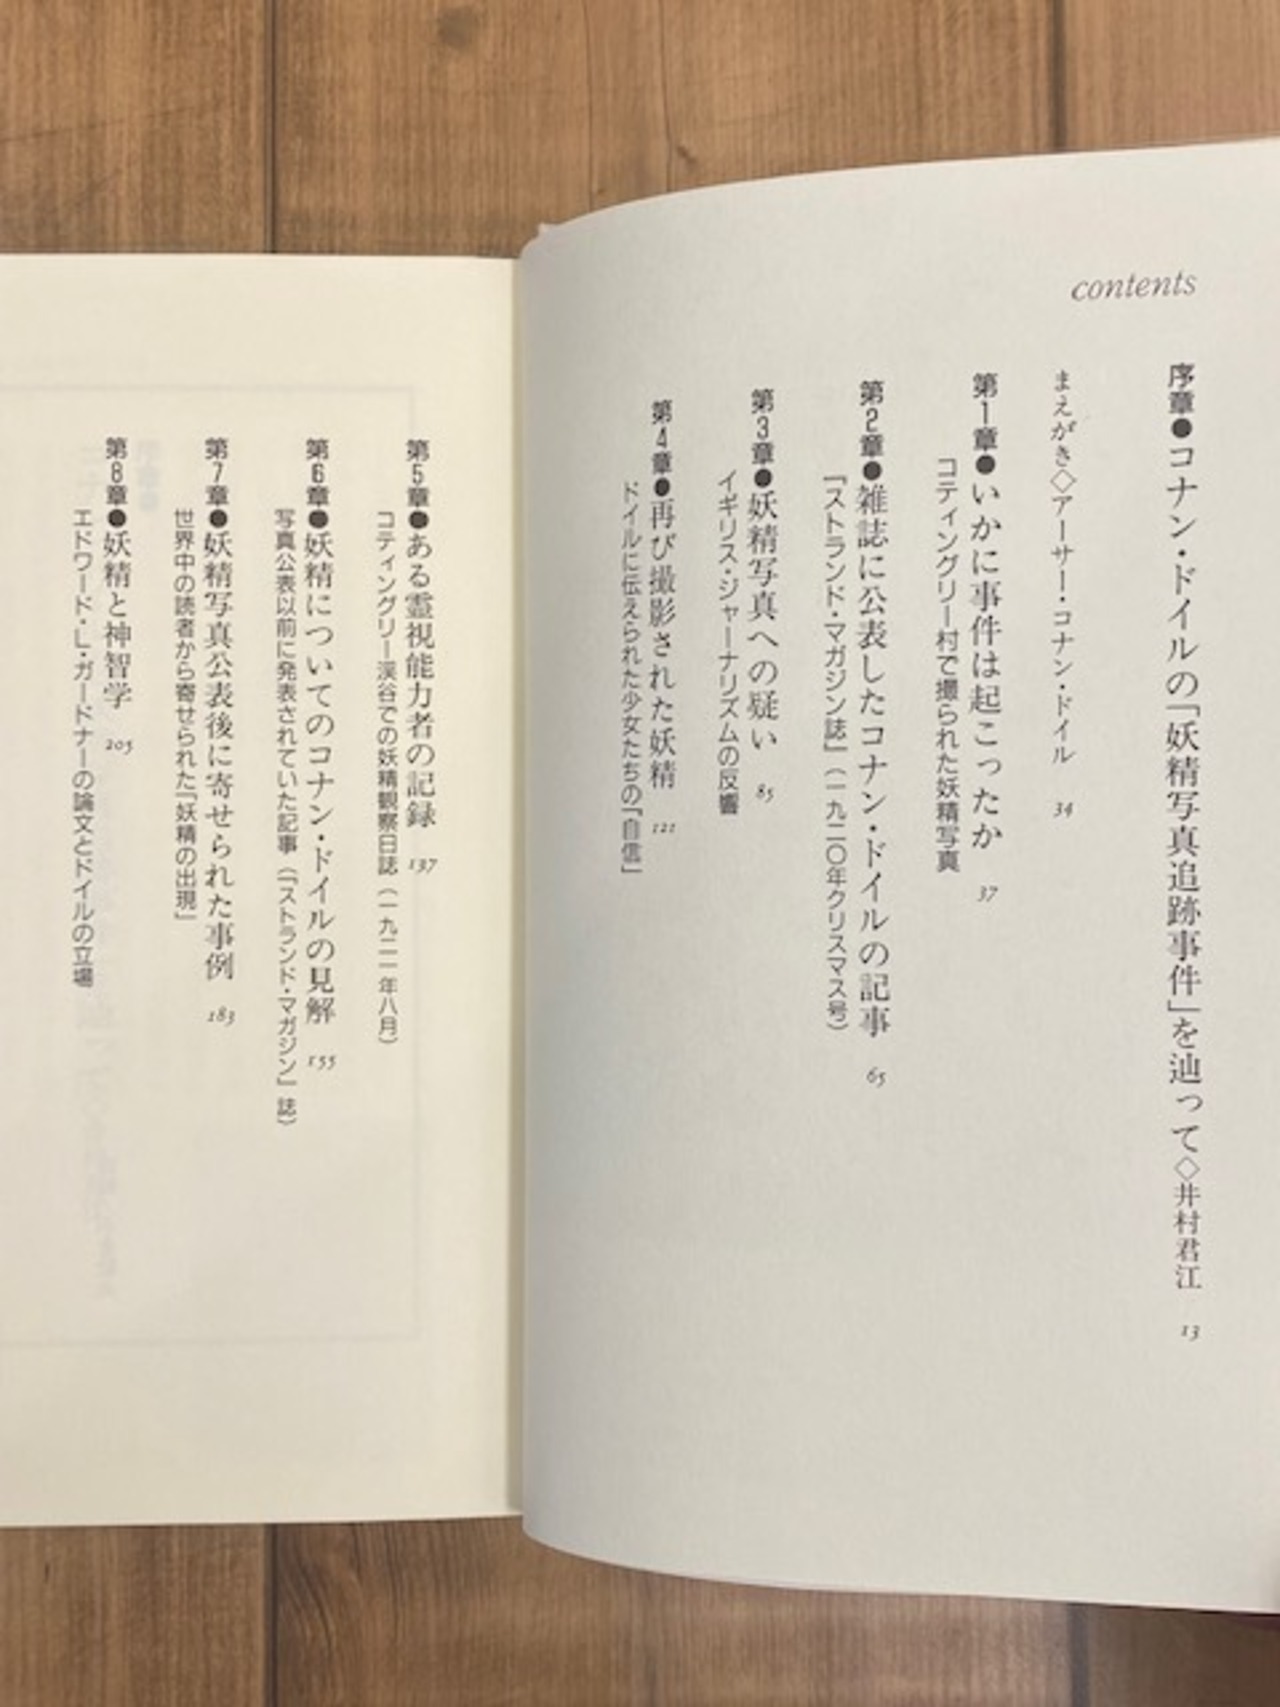 contents
序章●コナン・ドイルの「妖精写真追跡事件」を辿って◇井村君江 13
まえがき◇アーサー・コナン・ドイル 34
第1章●いかに事件は起こったか 37
コティングリー村で撮られた妖精写真
第2章●雑誌に公表したコナン・ドイルの記事 65
『ストランド・マガジン誌』（一九二〇年クリスマス号）
第3章●妖精写真への疑い 85
イギリス・ジャーナリズムの反響
第4章●再び撮影された妖精 121
ドイルに伝えられた少女たちの「自信」
第5章●ある霊視能力者の記録 137
コティングリー渓谷での妖精観察日誌（一九二一年八月）
第6章●妖精についてのコナン・ドイルの見解 155
写真公表以前に発表されていた記事（『ストランド・マガジン』誌）
第7章●妖精写真公表後に寄せられた事例 183
世界中の読者から寄せられた「妖精の出現」
第8章●妖精と神智学 205
エドワード・L・ガードナーの論文とドイルの立場